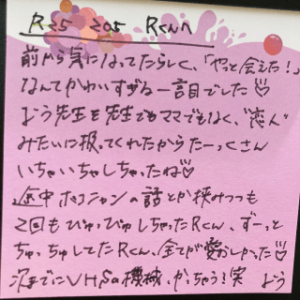 R 2.5 205 Rくんへ
前から気になってたらしく、「やっと会えた！」
なんてかわいすぎる一言でした♡
よう先生を先生でもママでもなく、"恋人"
みたいに扱ってくれたからたーっくさん
いちゃいちゃしちゃったね♡
途中ポコニャンの話とか挟みつつも
2回もぴゅっぴゅしちゃったRくん、ずーっと
ちゅっちゅしてたRくん、全てが愛おしかった♡
次までにVHSの機械、かっちゃう！笑 よう